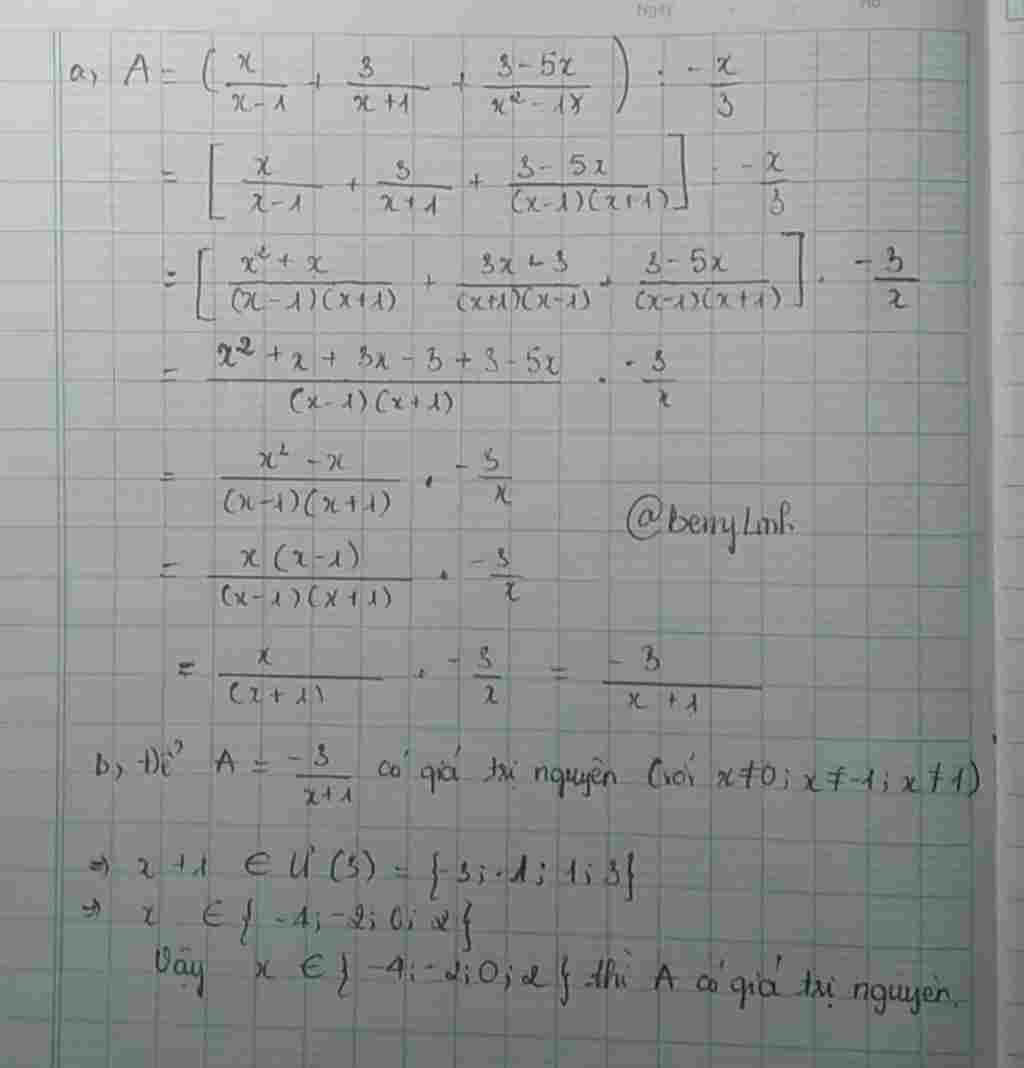 a, A = ( x/(x-1) + 3/(x+1) + (3-5x)/(x²-1) ) : -x/3
= [ x/(x-1) + 3/(x+1) + (3-5x)/((x-1)(x+1)) ] : -x/3
= [ (x²+x)/((x-1)(x+1)) + (3x-3)/((x+1)(x-1)) + (3-5x)/((x-1)(x+1)) ] . -3/x
= (x²+x+3x-3+3-5x)/((x-1)(x+1)) . -3/x
= (x²-x)/((x-1)(x+1)) . -3/x
@benyLinh
= x(x-1)/((x-1)(x+1)) . -3/x
= x/(x+1) . -3/x = -3/(x+1)
b, Để A = -3/(x+1) có giá trị nguyên (với x≠0; x≠-1; x≠1)
=> x+1 ∈ Ư(3) = {-3; -1; 1; 3}
=> x ∈ {-4; -2; 0; 2}
Vậy x ∈ {-4; -2; 0; 2} thì A có giá trị nguyên.